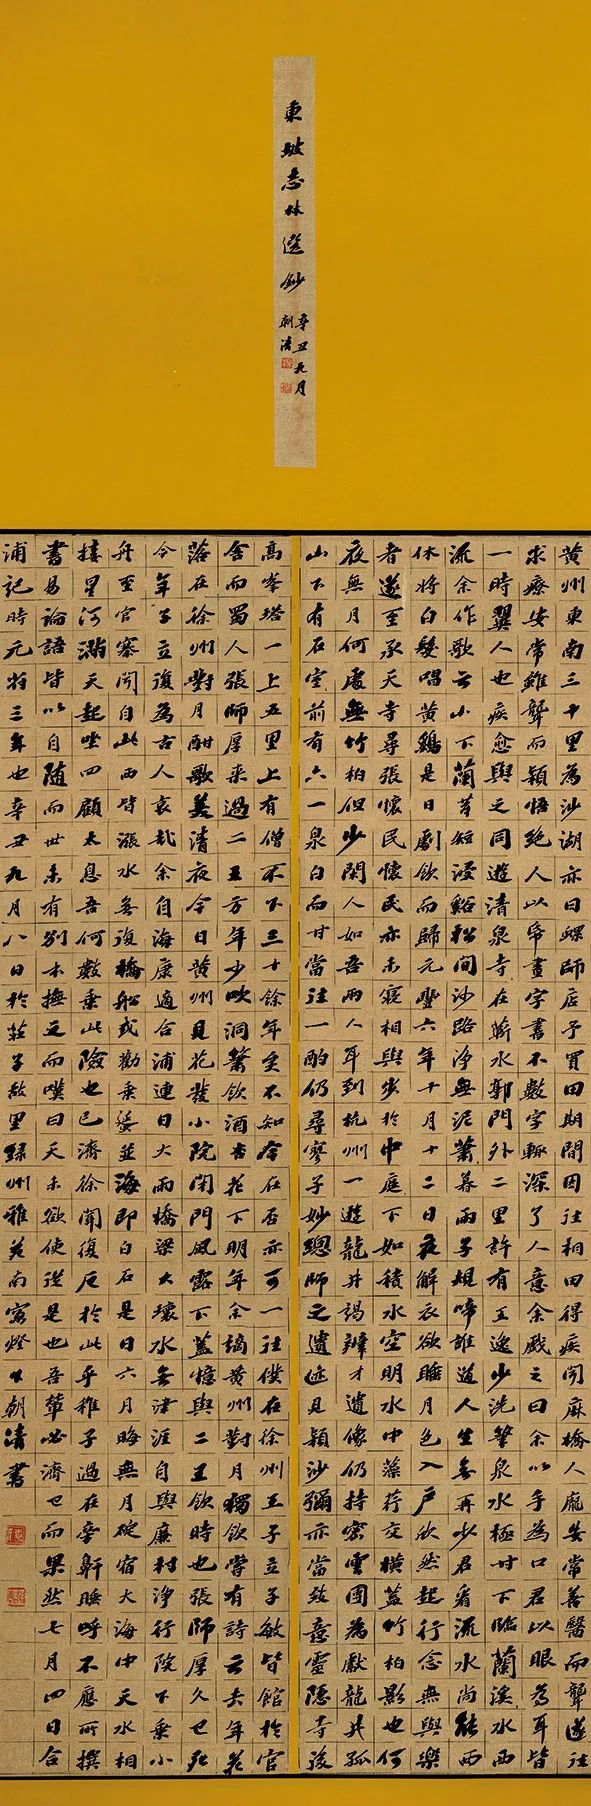 東坡志林選鈔
辛丑九月
朝清
黄州東南三十里為沙湖亦曰螺師店予買田期間因往相田得疾聞麻橋人龐安常善醫而聾遂往
求療安常雖聾而穎悟絕人以帋畫字書不數字輒深了人意余戲之曰余以手為口君以眼為耳皆
一時異人也疾愈與之同遊清泉寺在蘄水郭門外二里許有王逸少洗筆泉水極甘下臨蘭溪水西
流余作歌云山下蘭芽短浸谿松間沙路净無泥蕭暮雨子規啼誰道人生無再少君看流水尚能西
休將白髮唱黃鷄是日劇飲而歸元豐六年十月十二日夜解衣欲睡月色入户欣然起行念無與樂
者遂至承天寺尋張懷民懷民亦未寢相與步於中庭下如積水空明水中藻荇交横蓋竹柏影也何
夜無月何處無竹柏但少閑人如吾兩人耳到杭州一遊龍井謁辨才遺像仍持密雲團為獻龍井孤
山下有石室前有六一泉白而甘當往一酌仍尋寥子妙總師之遺迹見穎沙彌亦當致意靈隱寺後
高峯塔一上五里上有僧不下三十餘年矣不知今在否亦可一往僕在徐州王子立子敏皆館於官
舍而蜀人張師厚来過二王方年少吹洞簫飲酒杏花下明年余謫黄州對月獨飲嘗有詩云去年花
落在徐州對月酣歌美清夜今日黄州見花發小院閉門風露下蓋憶與二王飲時也張師厚久已死
今年子立復為古人哀哉余自海康適合浦連日大雨橋梁大壞水無津涯自興廉村净行院下乘小
舟至官寨聞自此西皆漲水無復橋船或勸乘蜑並海即白石是日六月晦無月碇宿大海中天水相
接星河滿天起坐四顧太息吾何數乘此險也已濟徐聞復厄於此乎稚子過在旁鼾睡呼不應所撰
書易論語皆以自随而世未有别本撫之而嘆曰天未欲使從是也吾輩必濟已而果然七月四日合
浦記時元符三年也辛丑九月八日於莊子故里緑州雅苑南窗燈下朝清書